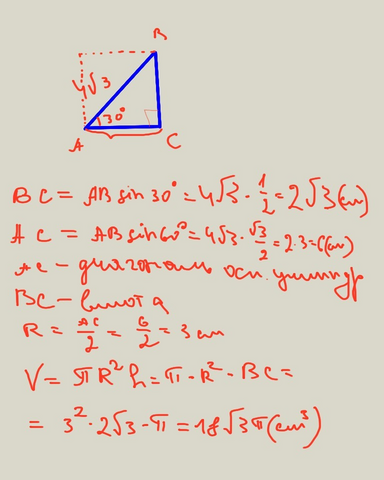 B
4√3
30°
A
C
BC = AB sin 30° = 4√3 · 1/2 = 2√3 (см)
AC = AB sin 60° = 4√3 · √3/2 = 2·3 = 6 (см)
AC – диагональ осн. цилиндр
BC – высота
R = AC/2 = 6/2 = 3 см
V = πR²h = π · R² · BC =
= 3² · 2√3 · π = 18√3π (см³)